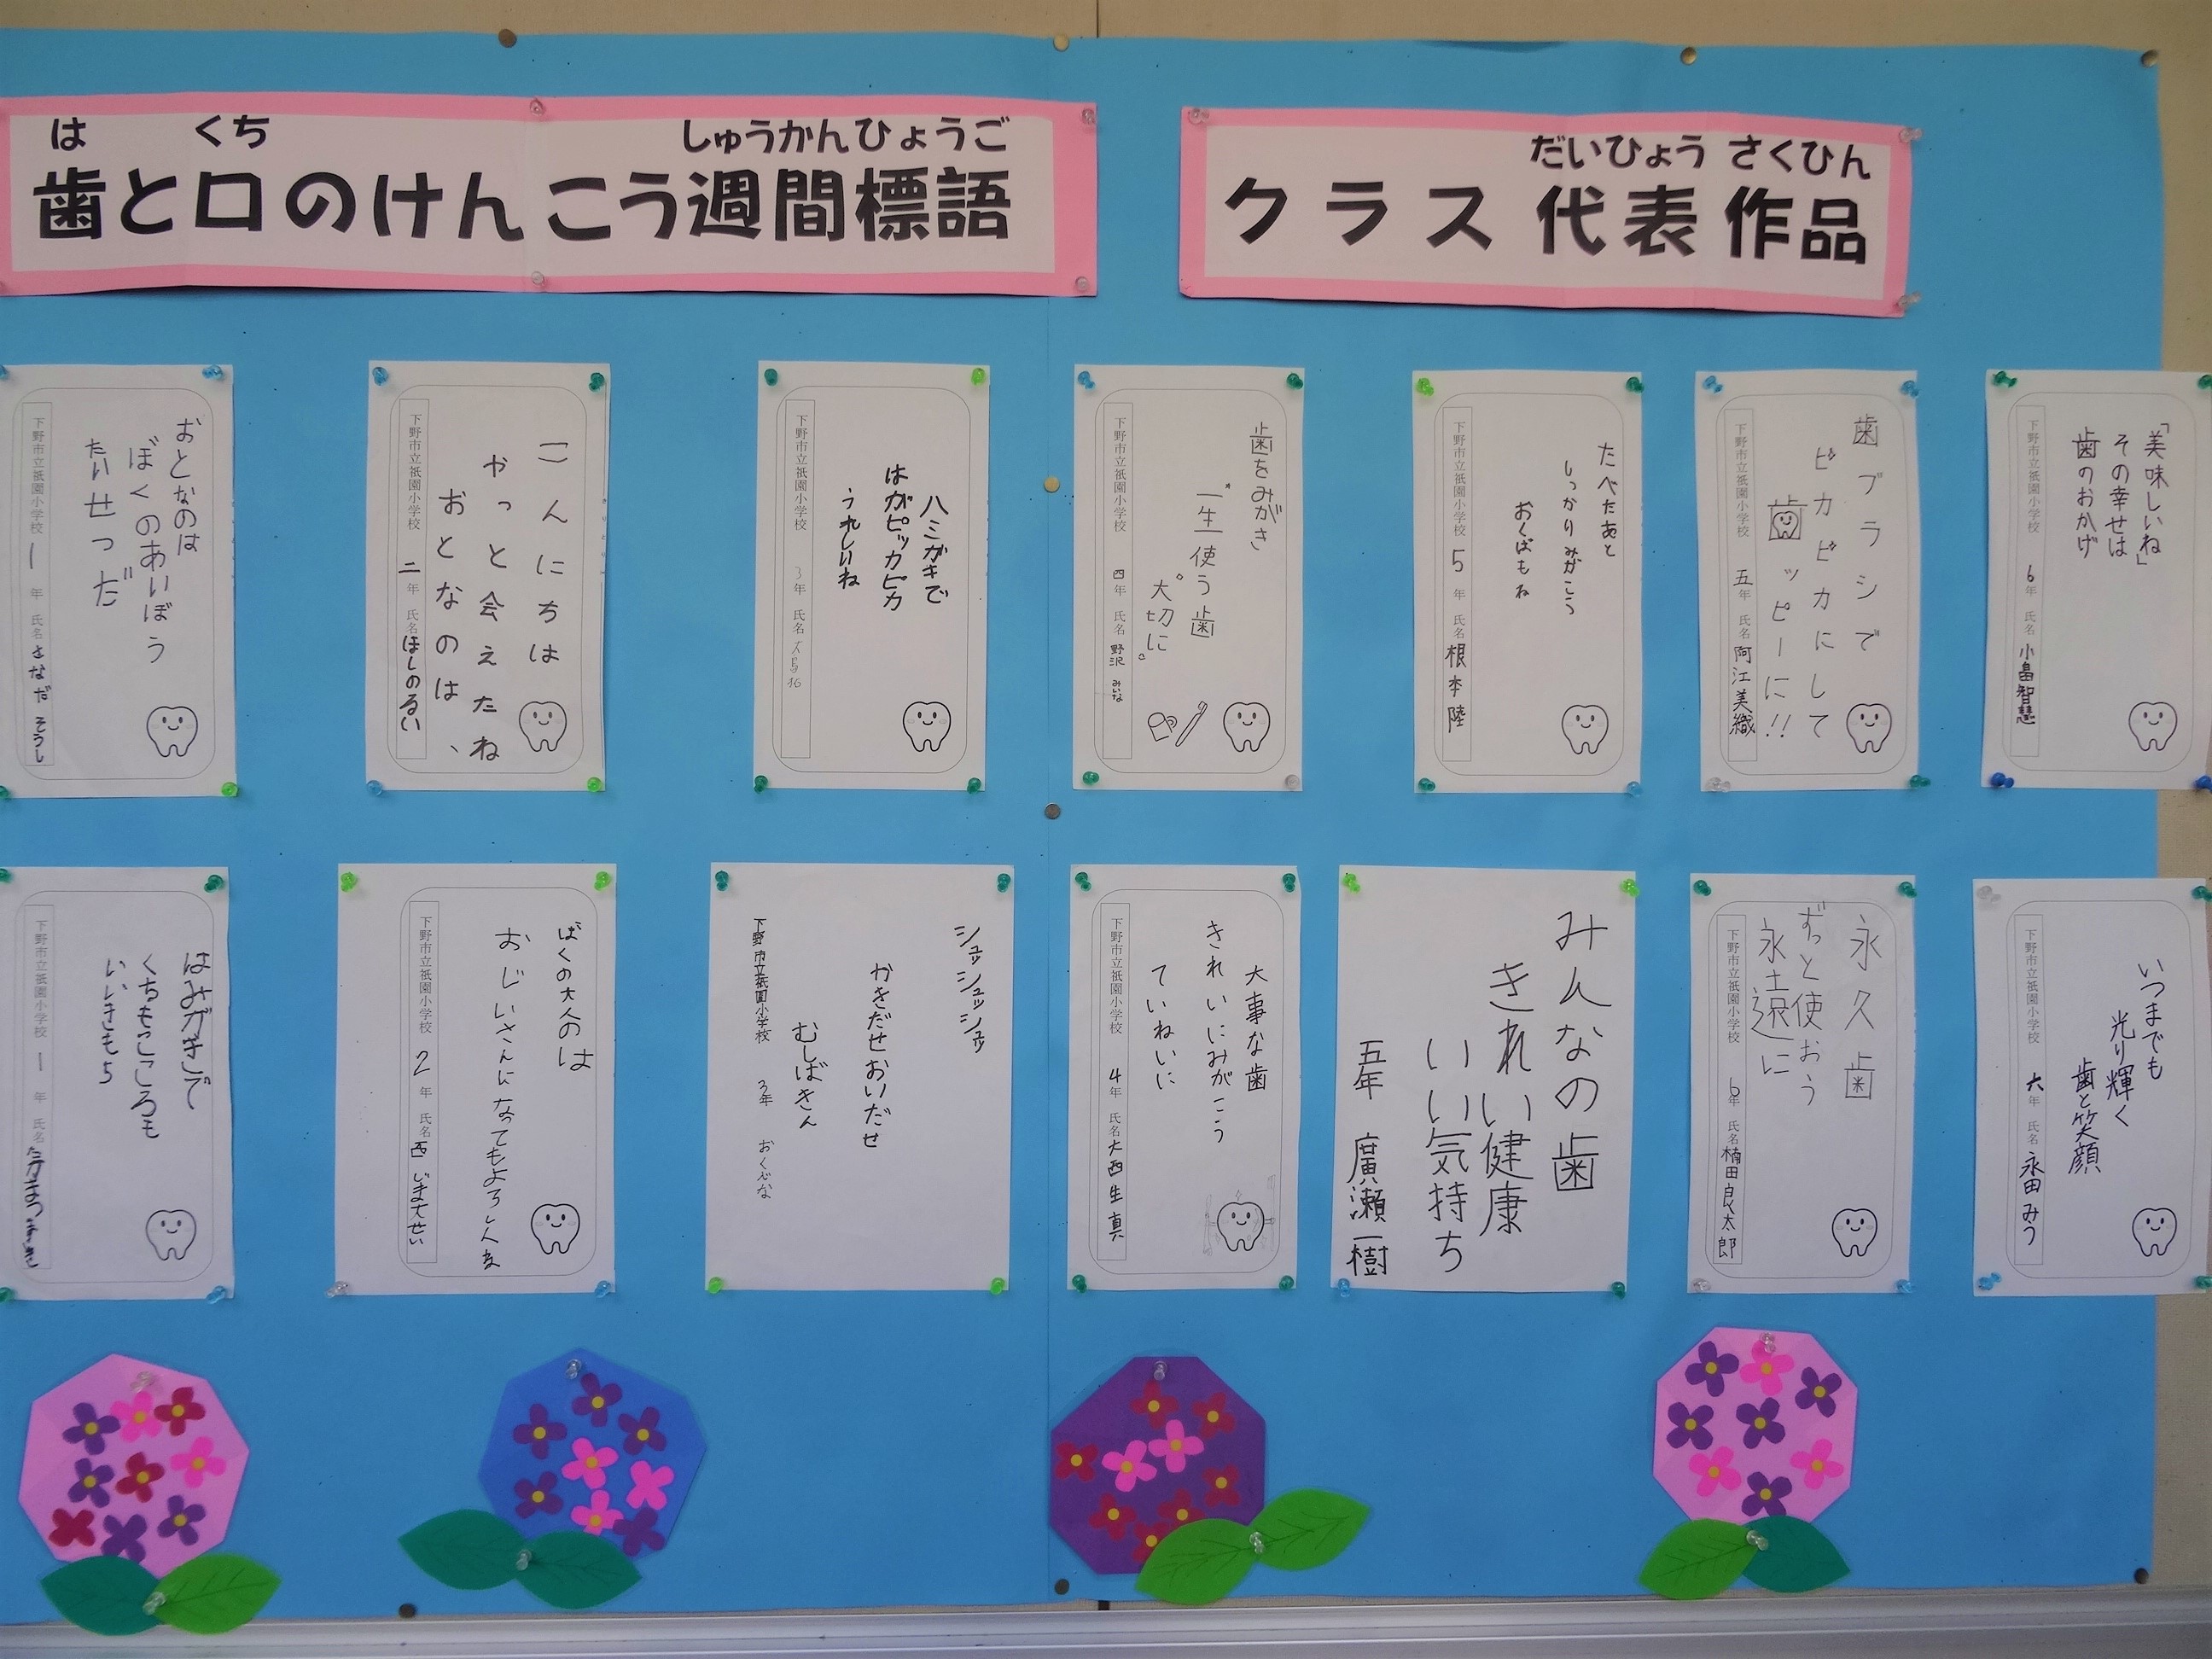 は くち しゅうかんひょうご
歯と口のけんこう週間標語
だいひょう さくひん
クラス代表作品
おとなのは
ぼくのあいぼう
たいせつだ
下野市立祇園小学校 1年 氏名 さなだ そうし
こんにちは
やっと会えたね
おとなのは、
下野市立祇園小学校 二年 氏名 ほしのるい
ハミガキで
はがピッカピカ
うれしいね
下野市立祇園小学校 3年 氏名
歯をみがき
一生使う歯
大切に。
下野市立祇園小学校 四年 氏名 野沢 みいな
たべたあと
しっかりみがこう
おくばもね
下野市立祇園小学校 5年 氏名 根本 陸
歯ブラシで
ピカピカにして
歯ッピーに!!
下野市立祇園小学校 五年 氏名 阿江美織
「美味しいね」
その幸せは
歯のおかげ
下野市立祇園小学校 6年 氏名 小畠智慧
はみがきで
くちもこころも
いいきもち
下野市立祇園小学校 1年 氏名
ぼくの大人のは
おじいさんになってもよろしくね
下野市立祇園小学校 2年 氏名 西じま大せい
シュッシュッシュッ
かきだせおいだせ
むしばきん
下野市立祇園小学校 3年
大事な歯
きれいにみがこう
ていねいに
下野市立祇園小学校 4年 氏名 大西生真
みんなの歯
きれい健康
いい気持ち
五年 廣瀬一樹
永久歯
ずっと使おう
永遠に
下野市立祇園小学校 6年 氏名 楠田良太郎
いつまでも
光り輝く
歯と笑顔
下野市立祇園小学校 六年 氏名 永田みつ